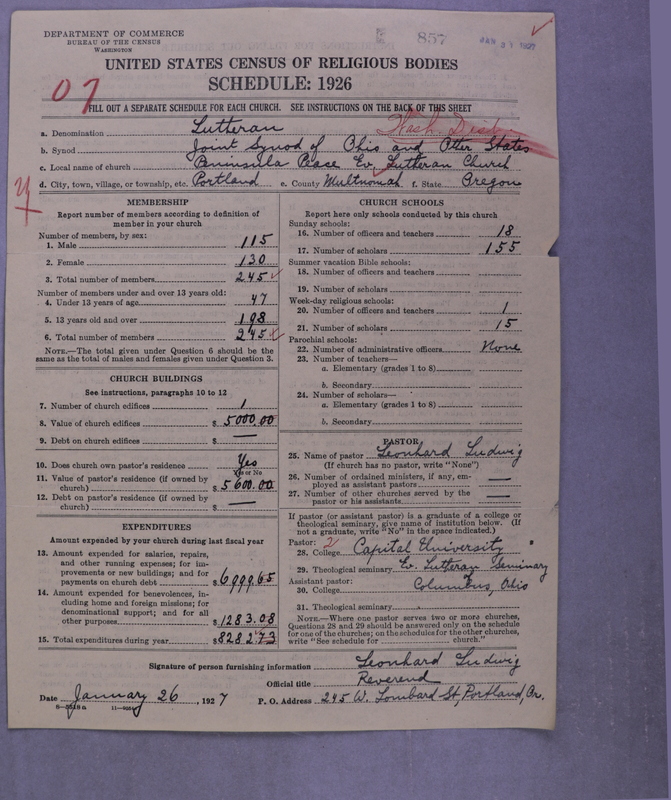 DEPARTMENT OF COMMERCE
BUREAU OF THE CENSUS
WASHINGTON
857
JAN 31 1927
UNITED STATES CENSUS OF RELIGIOUS BODIES
SCHEDULE: 1926
07
FILL OUT A SEPARATE SCHEDULE FOR EACH CHURCH. SEE INSTRUCTIONS ON THE BACK OF THIS SHEET
a. Denomination Lutheran
b. Synod Joint Synod of Ohio and Other States
c. Local name of church Peninsula Peace Ev. Lutheran Church
d. City, town, village, or township, etc. Portland e. County Multnomah f. State Oregon
MEMBERSHIP
Report number of members according to definition of member in your church
Number of members, by sex:
1. Male 115
2. Female 130
3. Total number of members 245
Number of members under and over 13 years old:
4. Under 13 years of age 47
5. 13 years old and over 198
6. Total number of members 245
NOTE.—The total given under Question 6 should be the same as the total of males and females given under Question 3.
CHURCH BUILDINGS
See instructions, paragraphs 10 to 12
7. Number of church edifices 1
8. Value of church edifices $ 5000.00
9. Debt on church edifices $ —
10. Does church own pastor's residence Yes
Yes or No
11. Value of pastor's residence (if owned by church) $ 5600.00
12. Debt on pastor's residence (if owned by church) $ —
EXPENDITURES
Amount expended by your church during last fiscal year
13. Amount expended for salaries, repairs, and other running expenses; for improvements or new buildings; and for payments on church debt $ 6999.65
14. Amount expended for benevolences, including home and foreign missions; for denominational support; and for all other purposes $ 1283.08
15. Total expenditures during year $ 8282.73
CHURCH SCHOOLS
Report here only schools conducted by this church
Sunday schools:
16. Number of officers and teachers 18
17. Number of scholars 155
Summer vacation Bible schools:
18. Number of officers and teachers
19. Number of scholars
Week-day religious schools:
20. Number of officers and teachers 1
21. Number of scholars 15
Parochial schools:
22. Number of administrative officers None
23. Number of teachers—
a. Elementary (grades 1 to 8)
b. Secondary
24. Number of scholars—
a. Elementary (grades 1 to 8)
b. Secondary
PASTOR
25. Name of pastor Leonhard Ludwig
(If church has no pastor, write "None")
26. Number of ordained ministers, if any, employed as assistant pastors —
27. Number of other churches served by the pastor or his assistants —
If pastor (or assistant pastor) is a graduate of a college or theological seminary, give name of institution below. (If not a graduate, write "No" in the space indicated.)
Pastor: 2
28. College Capital University
29. Theological seminary Ev. Lutheran Seminary
Assistant pastor:
30. College Columbus, Ohio
31. Theological seminary
NOTE.—Where one pastor serves two or more churches, Questions 28 and 29 should be answered only on the schedule for one of the churches; on the schedules for the other churches, write "See schedule for church."
Signature of person furnishing information Leonhard Ludwig
Official title Reverend
Date January 26, 1927 P. O. Address 295 W. Lombard St, Portland, Or.